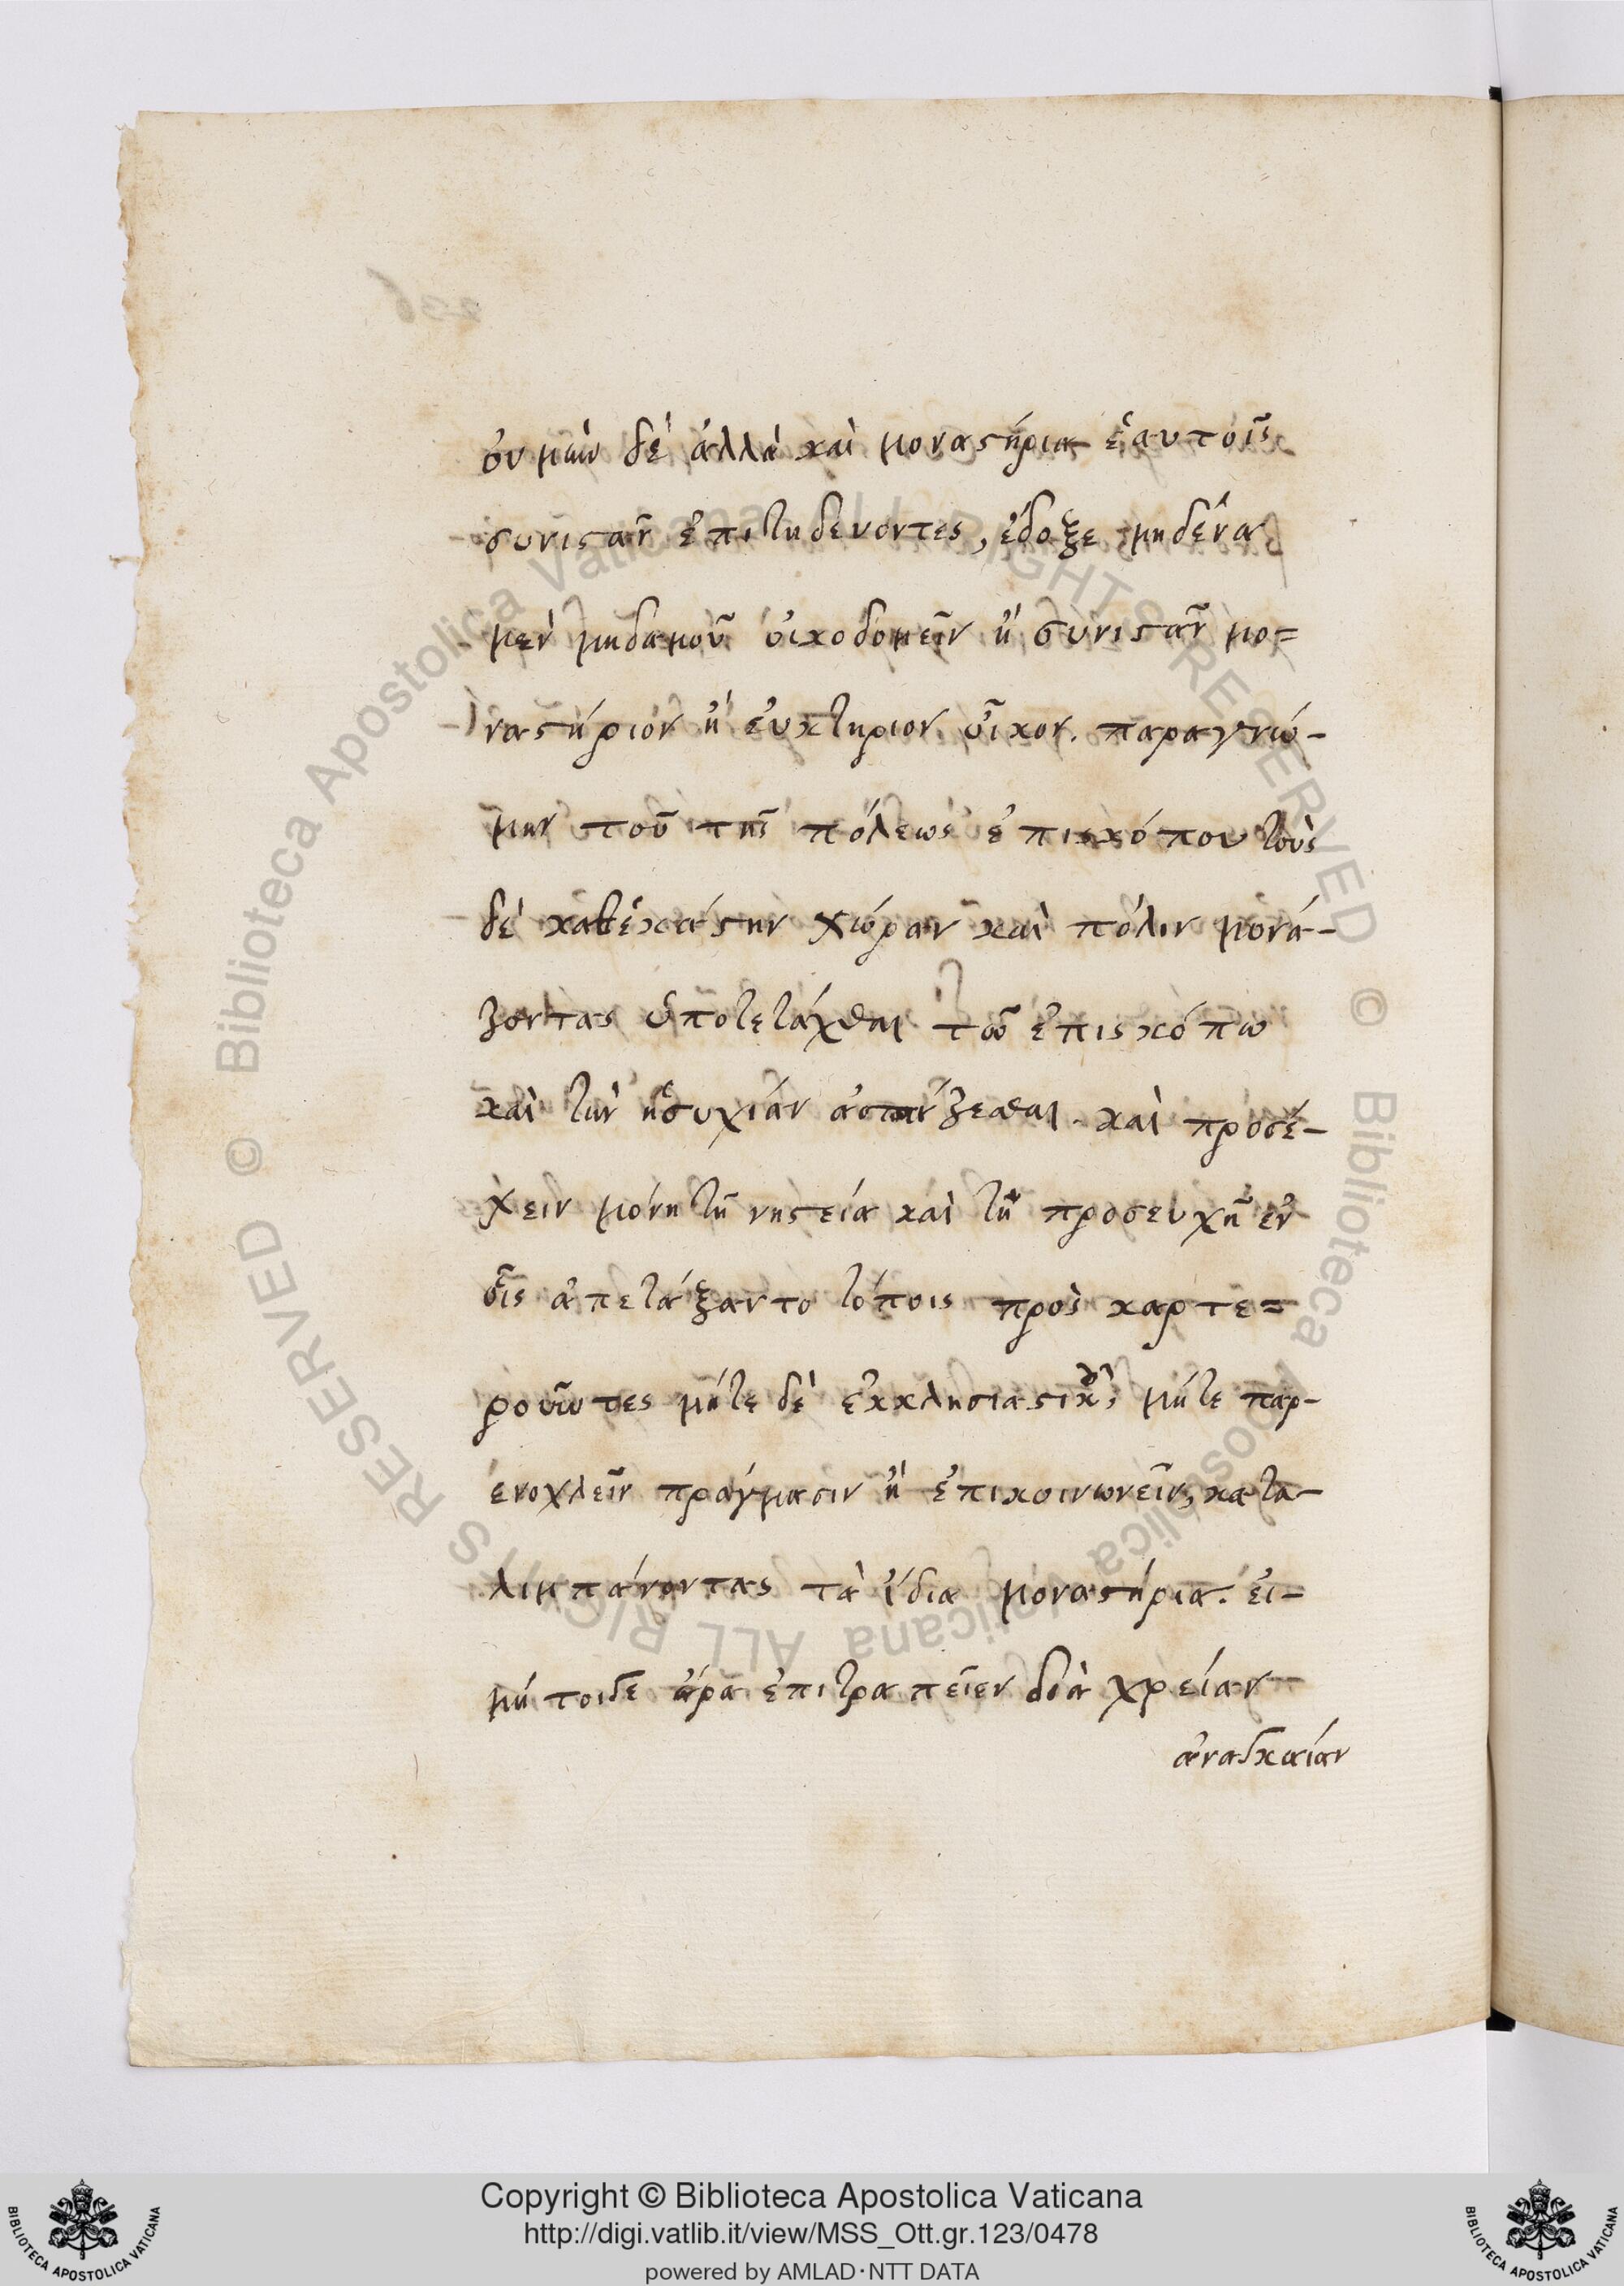 οὐ μὴν δὲ ἀλλὰ καὶ μοναστήρια ἑαυτοῖς
συνιστᾶν ἐπιτηδεύοντες, ἔδοξε μηδένα
μὲν μηδαμοῦ οἰκοδομεῖν ἢ συνιστᾶν μο=
ναστήριον ἢ εὐκτήριον οἶκον. παραγνώ-
μην τοῦ τῆς πόλεως ἐπισκόπου τοὺς
δὲ καθεκάστην χώραν καὶ πόλιν μονά-
ζοντας ὑποτετάχθαι τῶ ἐπισκόπω
καὶ τὴν ἡσυχίαν ἀσπάζεσθαι. καὶ προσέ-
χειν μόνη τῆ νηστεία καὶ τῆ προσευχῆ ἐν
οἷς ἀπετάξαντο τόποις προσκαρτε=
ροῦντες μήτε δὲ ἐκκλησιαστικοῖς μήτε παρ-
ενοχλεῖν πράγμασιν ἢ ἐπικοινωνεῖν, κατα-
λιμπάνοντας τὰ ἴδια μοναστήρια. εἰ-
μή τοιδε ἄρα ἐπιτραπεῖεν διὰ χρείαν
ἀναγκαίαν
Copyright © Biblioteca Apostolica Vaticana
http://digi.vatlib.it/view/MSS_Ott.gr.123/0478
powered by AMLAD·NTT DATA
© Biblioteca Apostolica Vaticana ALL RIGHTS RESERVED © Biblioteca Apostolica Vaticana ALL RIGHTS RESERVED
BIBLIOTECA APOSTOLICA VATICANA
BIBLIOTECA APOSTOLICA VATICANA